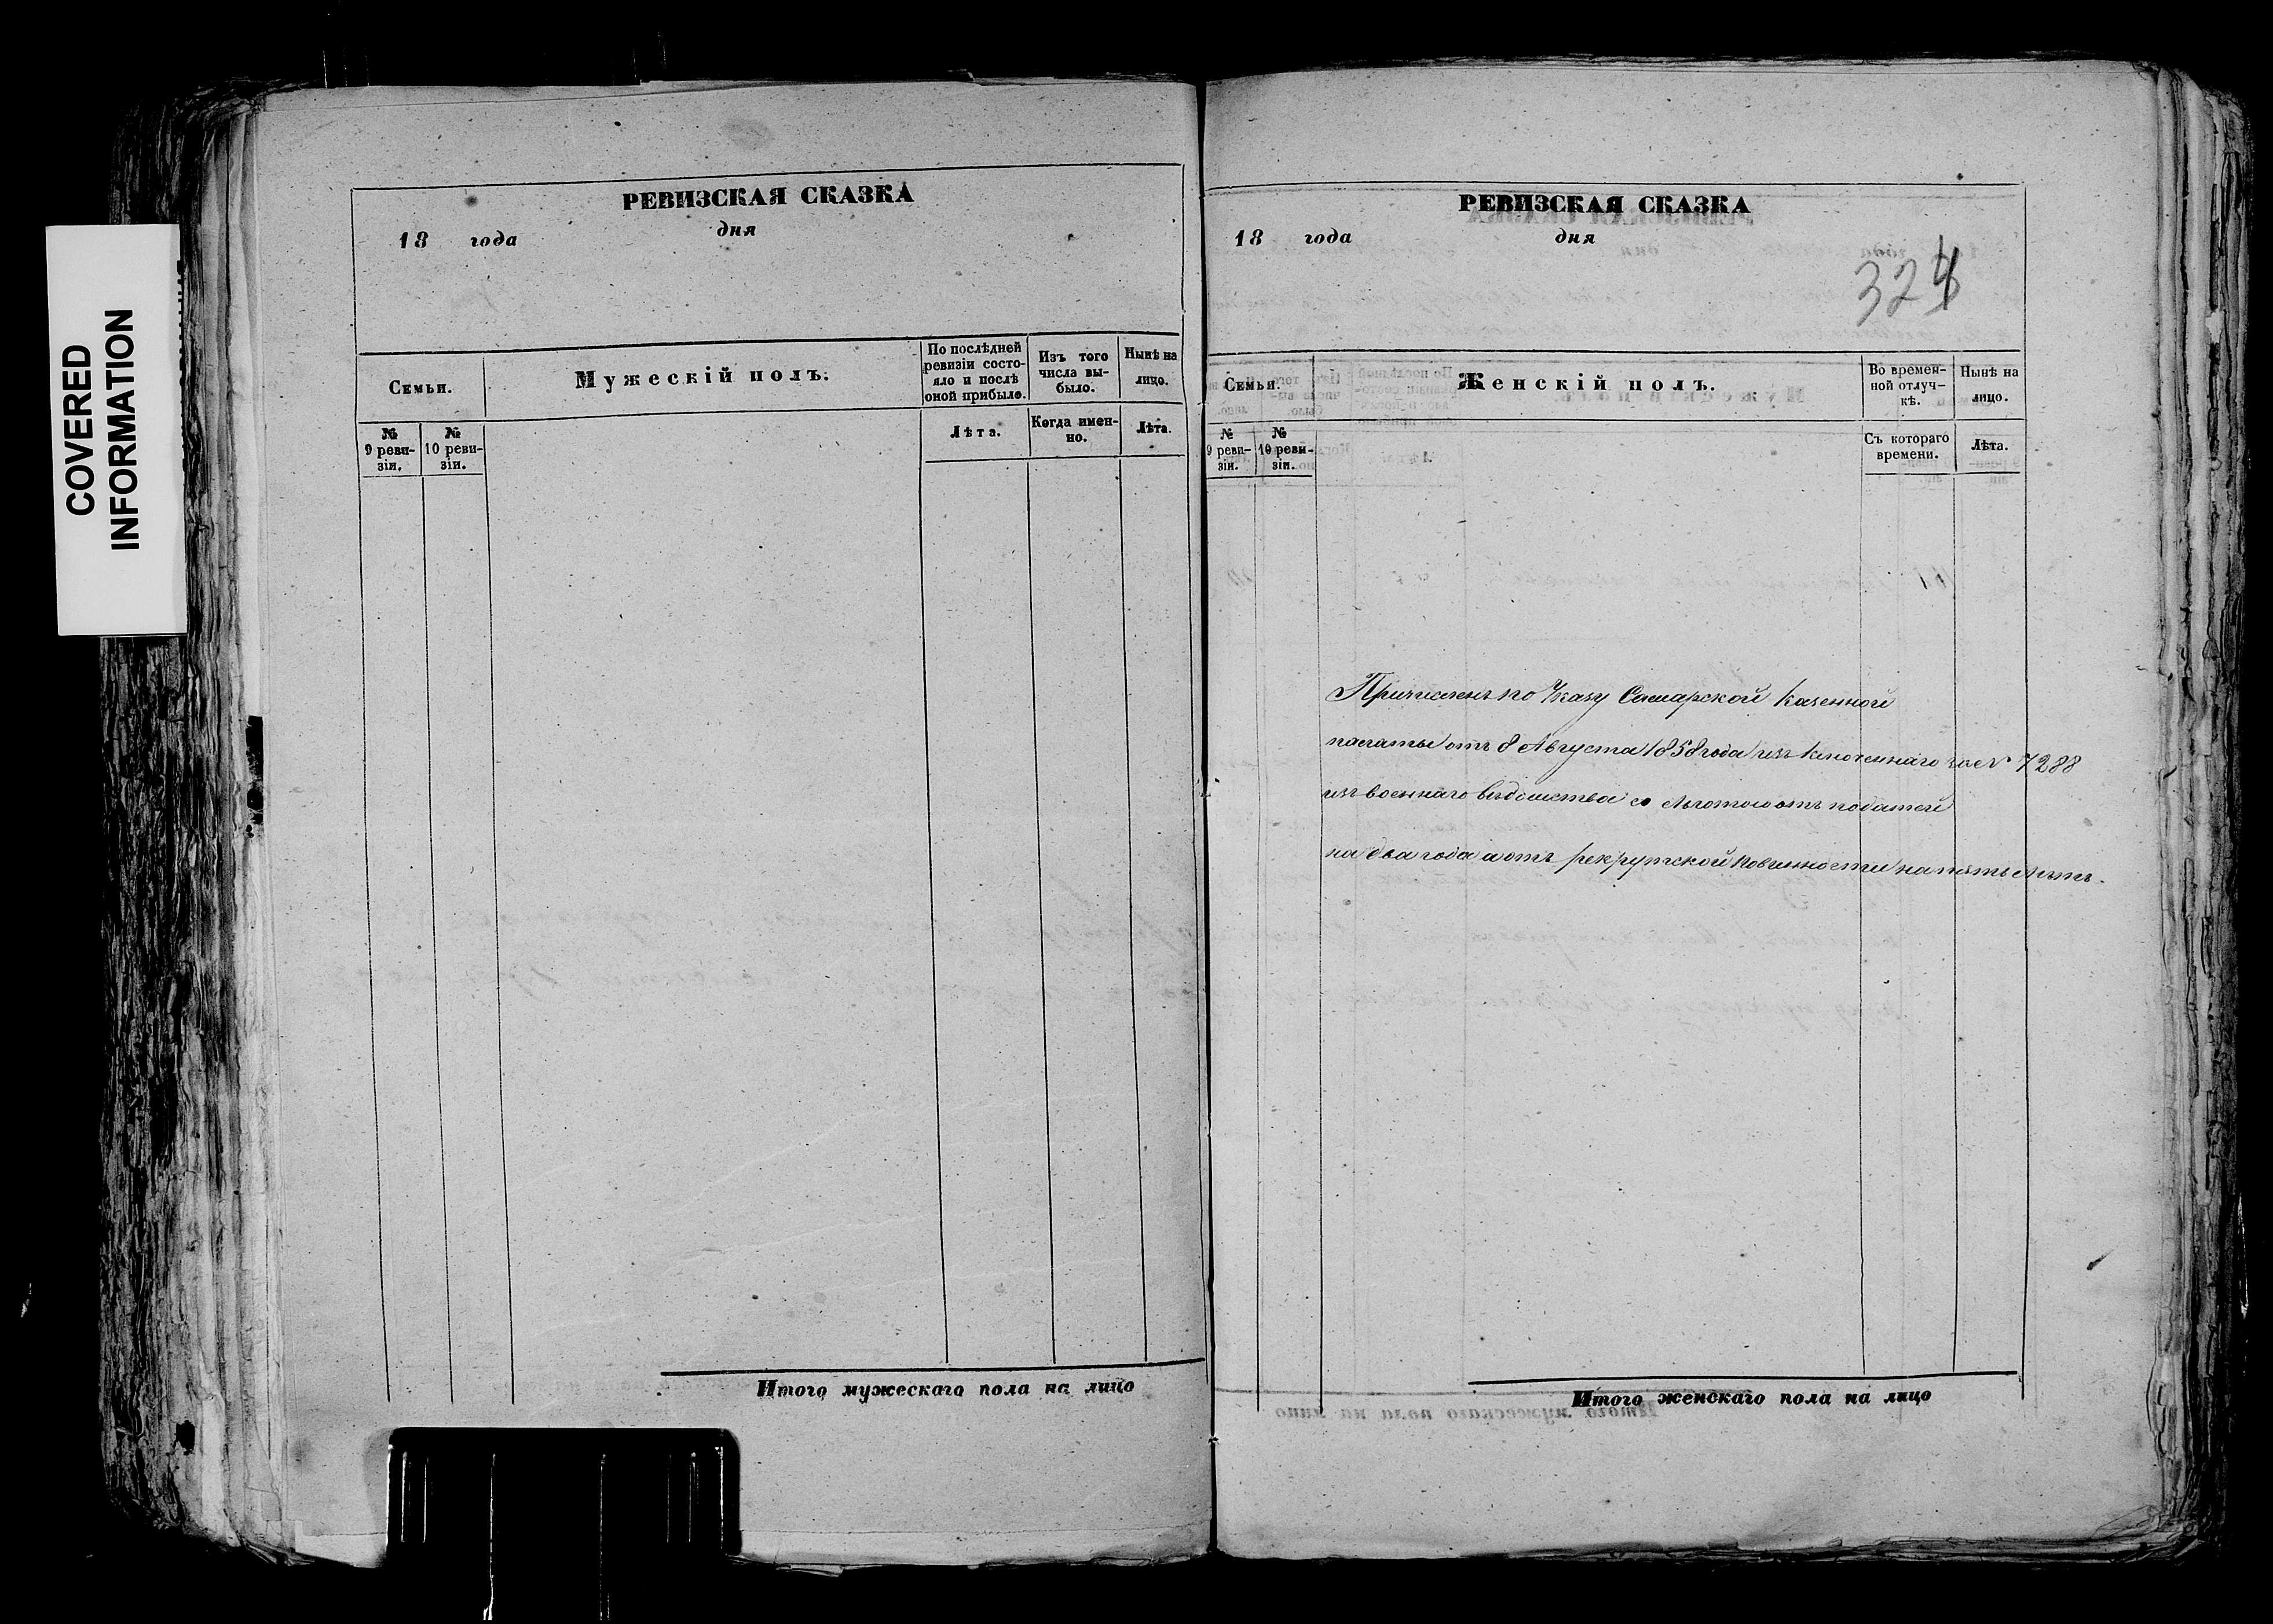 COVERED
INFORMATION
РЕВИЗСКАЯ СКАЗКА
18 года дня
Семьи.
Мужескій полъ.
По послѣдней ревизіи состо-
яло и послѣ
оной прибыло.
Изъ того
числа вы-
было.
Нынѣ на
лицо.
№
9 реви-
зіи.
№
10 реви-
зіи.
Лѣта.
Когда имен-
но.
Лѣта.
Итого мужескаго пола на лицо
РЕВИЗСКАЯ СКАЗКА
18 года дня
324
Семьи.
Женскій полъ.
Во времен-
ной отлуч-
кѣ.
Нынѣ на
лицо.
№
9 реви-
зіи.
№
10 реви-
зіи.
Съ котораго
времени.
Лѣта.
Причисленъ по Указу Самарской Казенной
палаты отъ 8 Августа 1858 года за № 7288
изъ военнаго вѣдомства со льготою отъ податей
на два года а отъ рекрутской повинности на пять лѣтъ.
Итого женскаго пола на лицо